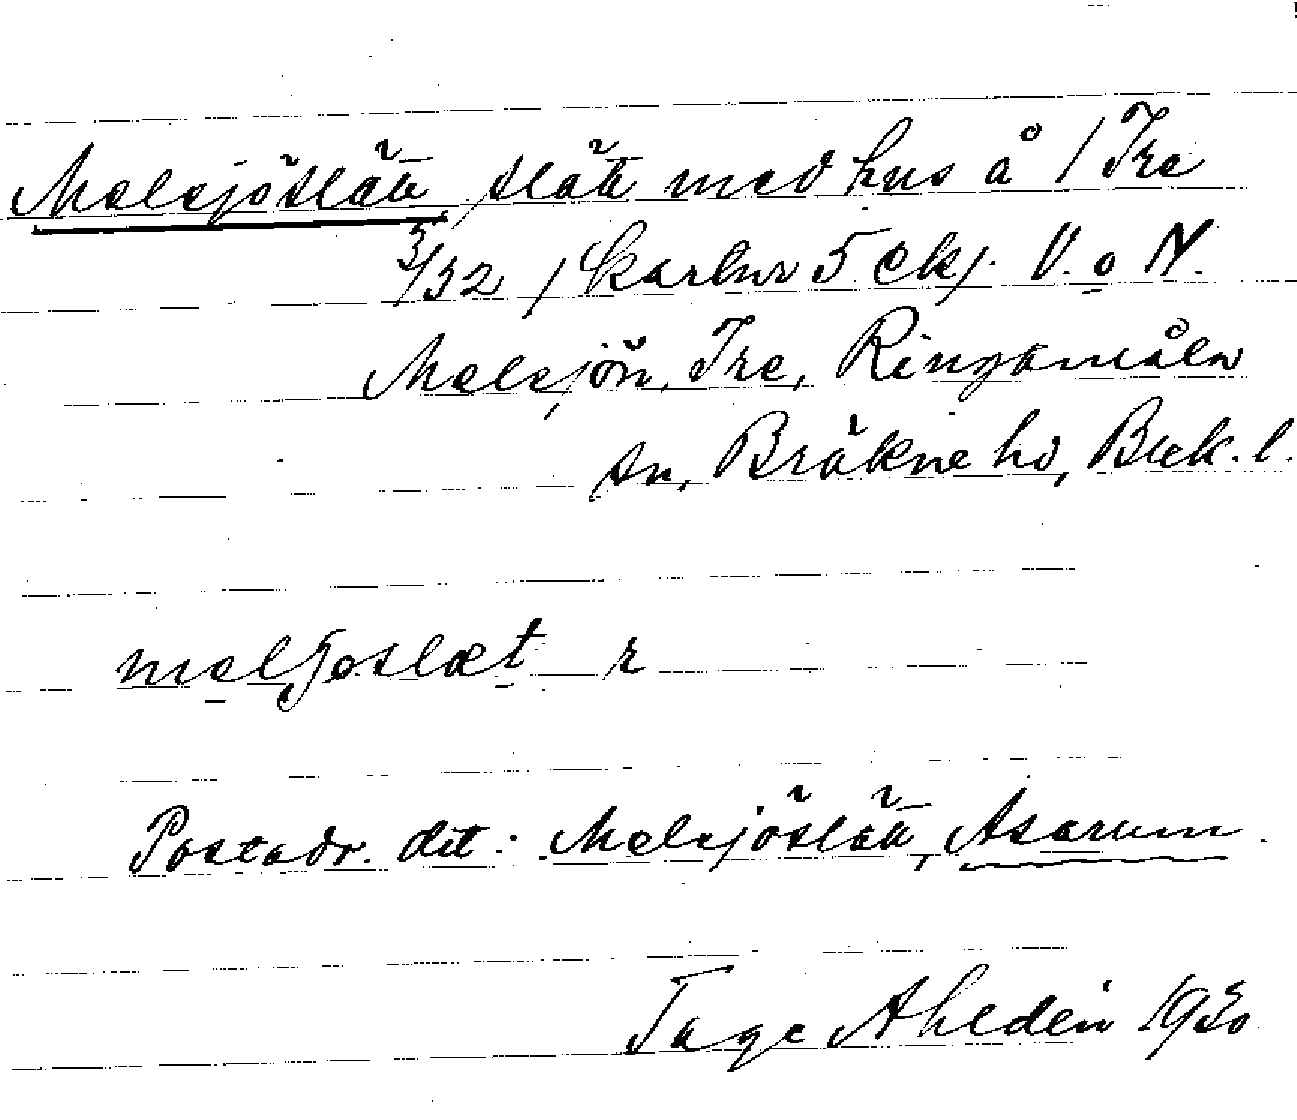 Melsjöslätt, slätt med hus å 1 Ire
3/32, karlnr 5 ekj. V. o N.
Melsjön, Ire, Ringamåla
sn, Bräkne hd, Blek. l.
meljöslæt r
Postadr. dit: Melsjöslätt, Asarum.
Tage Ahldén 1930